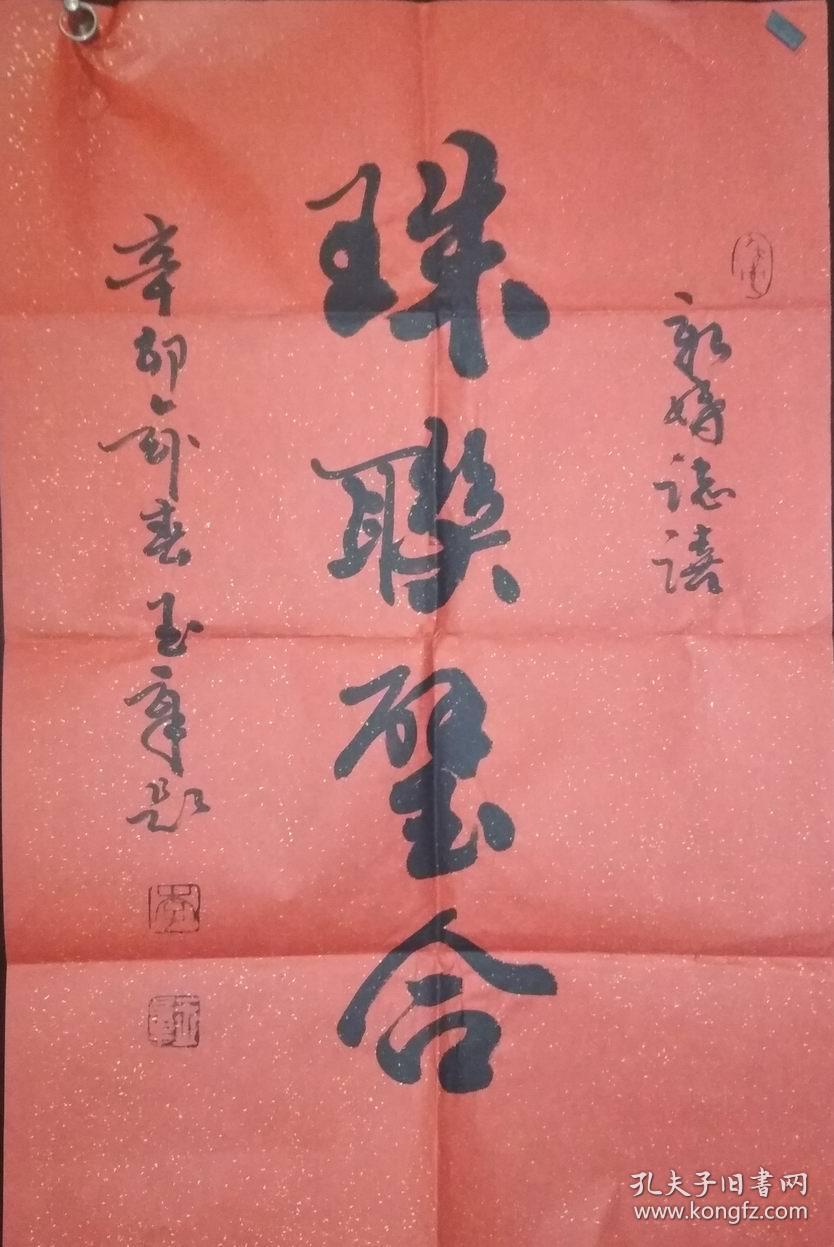 新婚誌禧
珠聯璧合
辛卯年春玉章题
孔夫子旧書网
www.kongfz.com